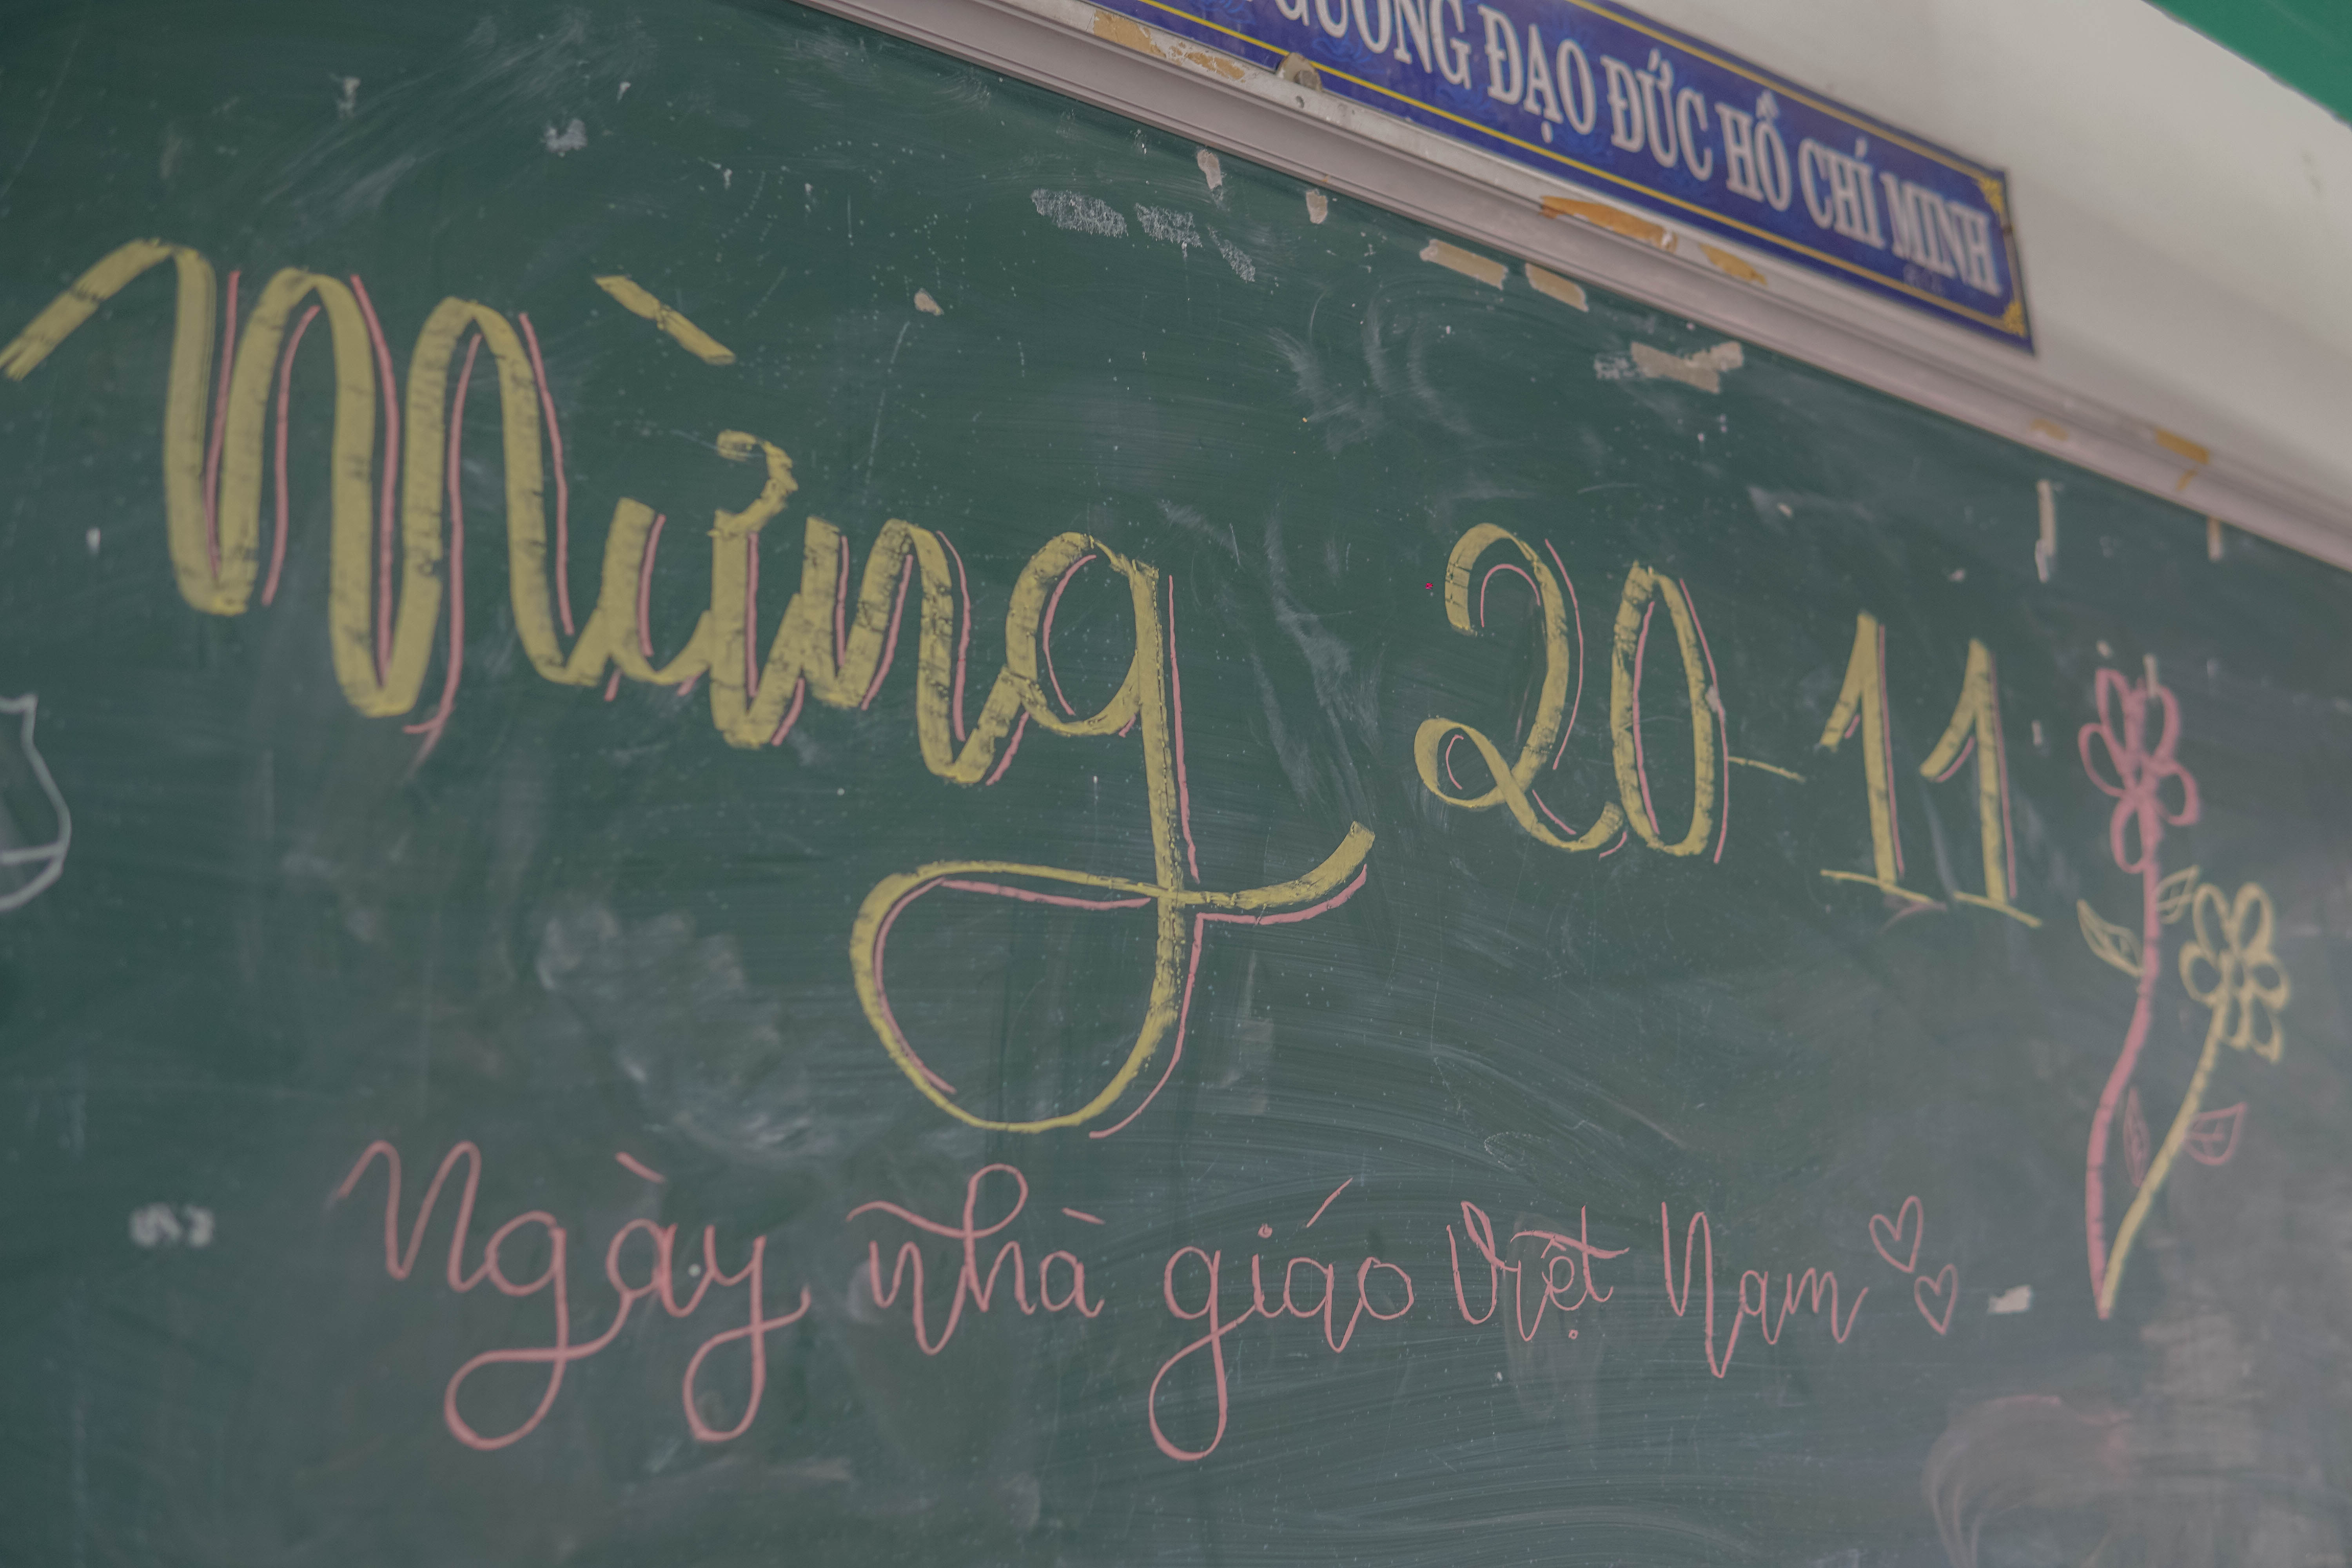 GƯƠNG ĐẠO ĐỨC HỒ CHÍ MINH
Mừng 20-11
Ngày nhà giáo Việt Nam